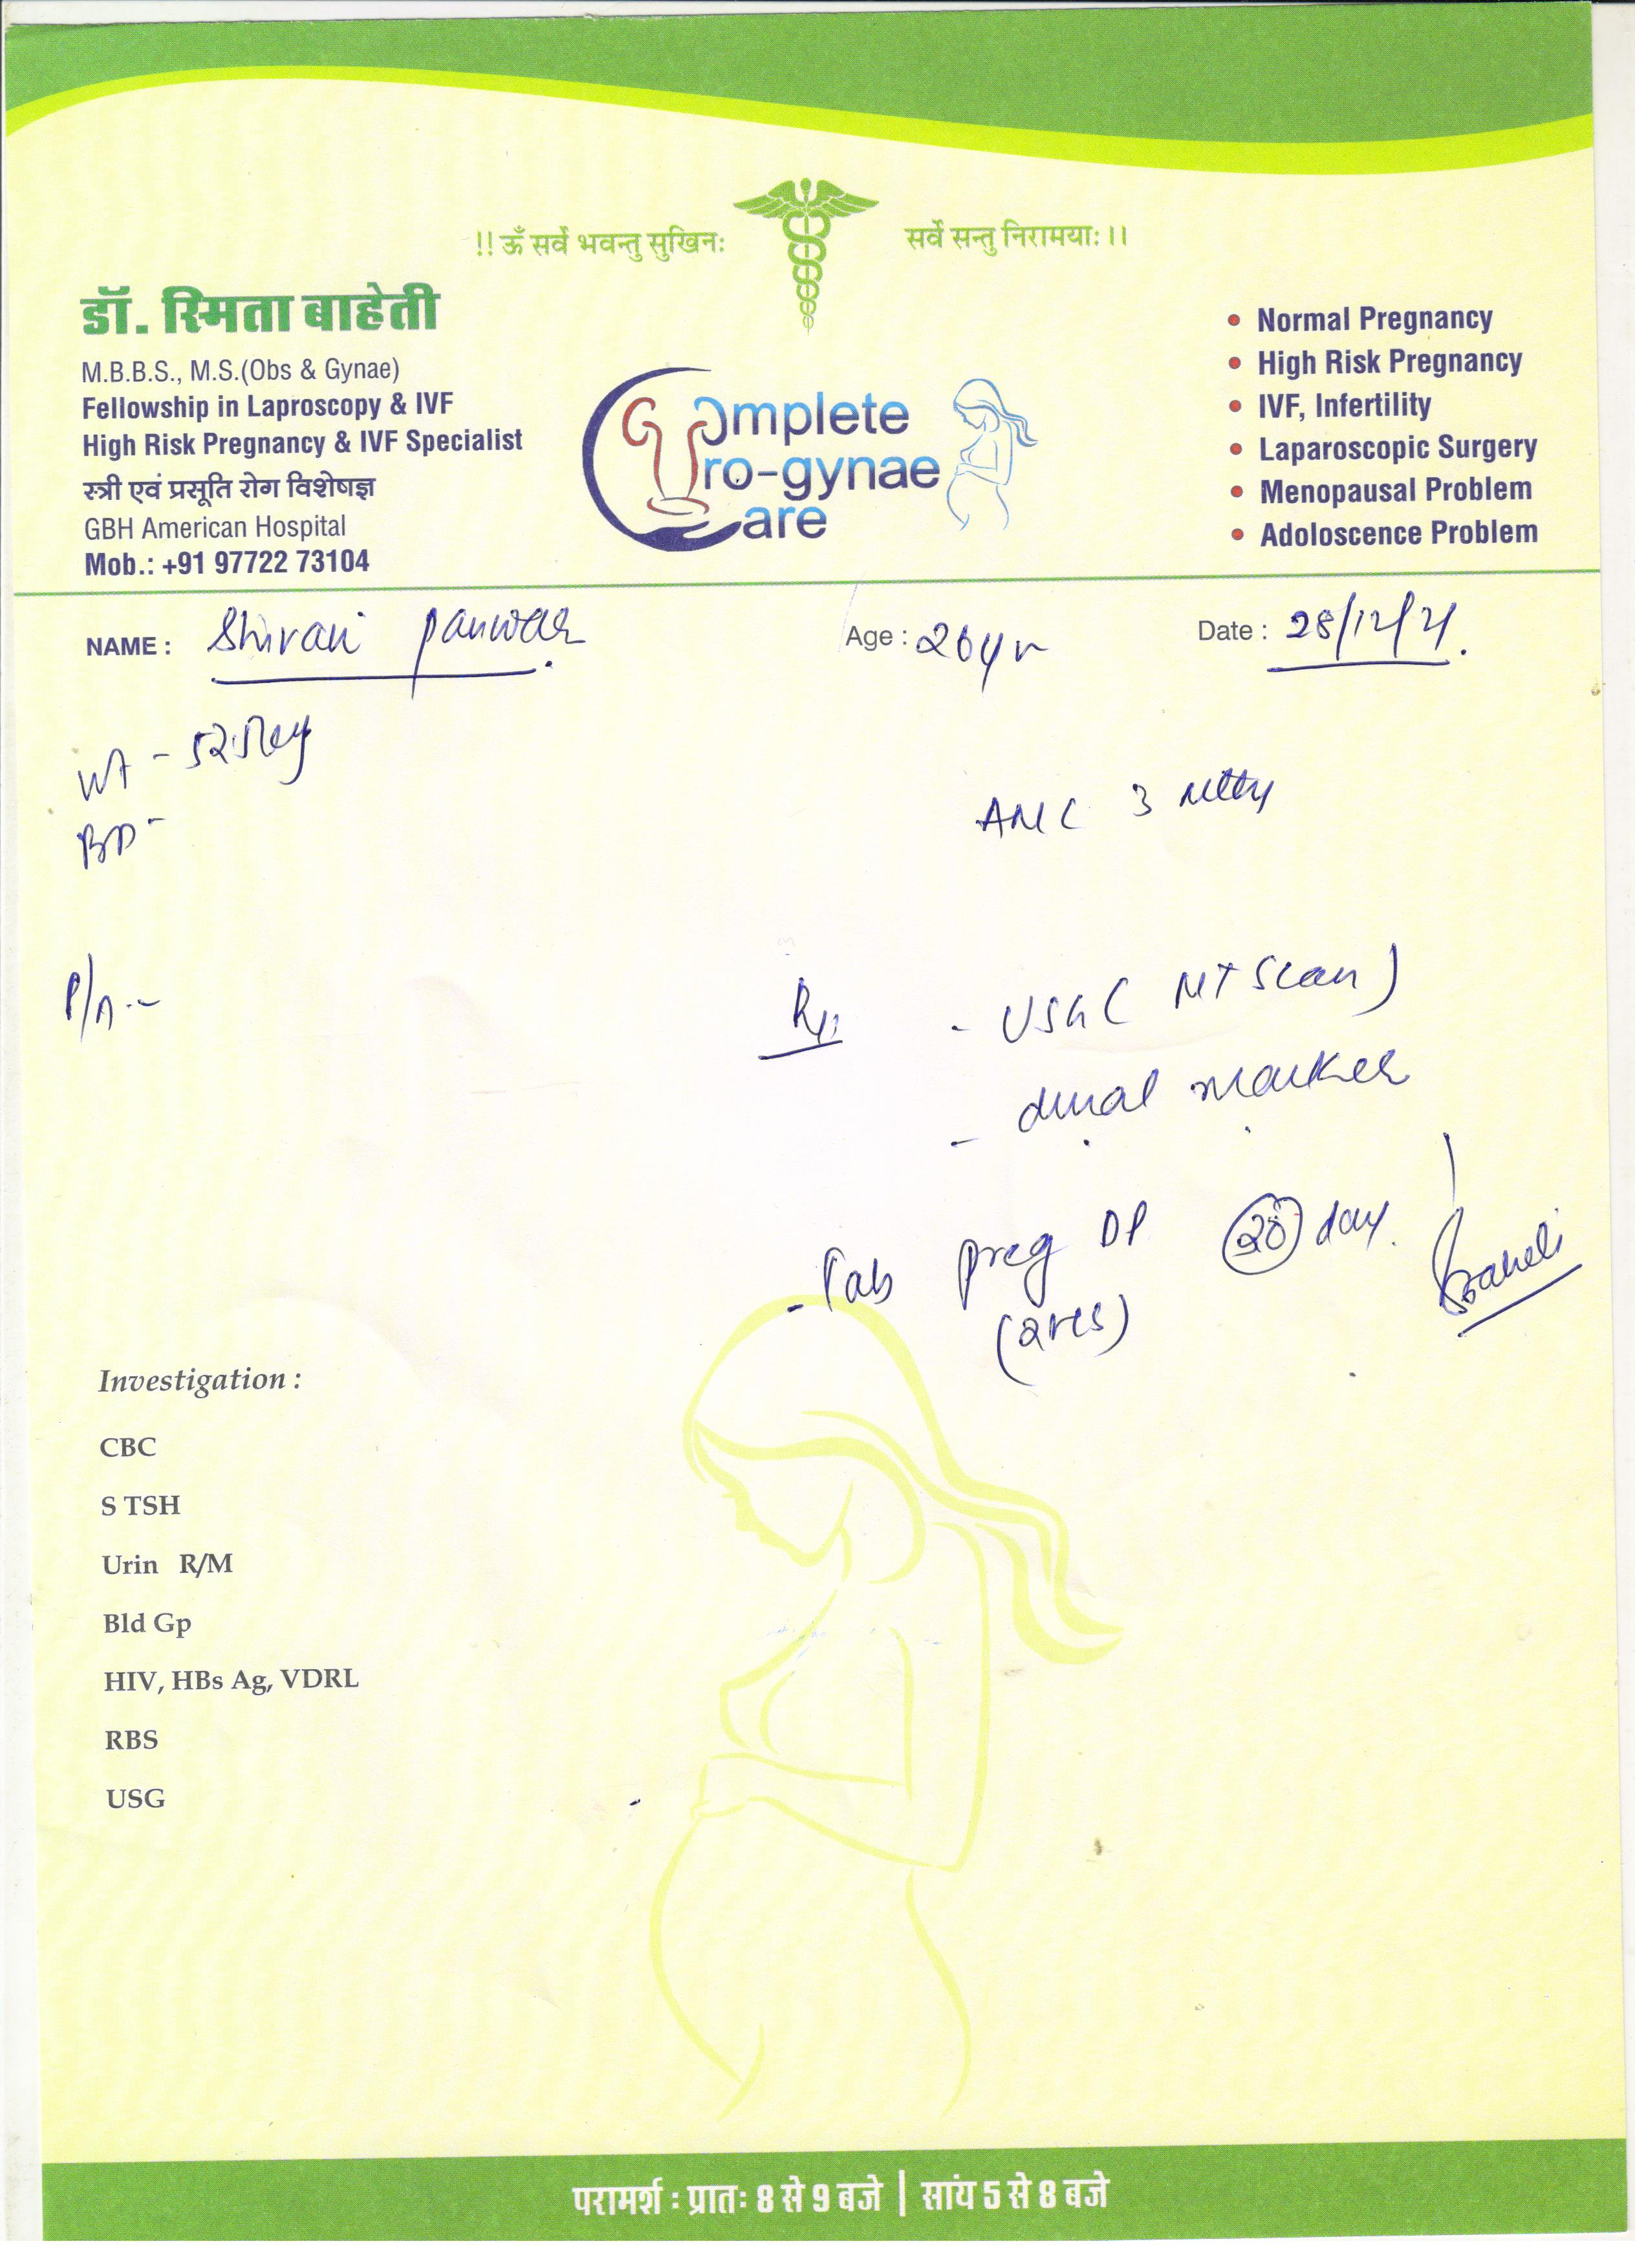 !! ॐ सर्वे भवन्तु सुखिनः
सर्वे सन्तु निरामयाः ।।
डॉ. स्मिता बाहेती
M.B.B.S., M.S.(Obs & Gynae)
Fellowship in Laproscopy & IVF
High Risk Pregnancy & IVF Specialist
स्त्री एवं प्रसूति रोग विशेषज्ञ
GBH American Hospital
Mob.: +91 97722 73104
Complete
Uro-gynae
Care
• Normal Pregnancy
• High Risk Pregnancy
• IVF, Infertility
• Laparoscopic Surgery
• Menopausal Problem
• Adoloscence Problem
NAME : Shivani Panwar Age : 26 yr Date : 28/12/21.
Wt -
BP -
ANC 3
P/A -
Rx - USG ( NT Scan )
- dual marker
- Tab Preg DP day.
Investigation :
CBC
S TSH
Urin R/M
Bld Gp
HIV, HBs Ag, VDRL
RBS
USG
परामर्श : प्रातः 8 से 9 बजे | सांय 5 से 8 बजे